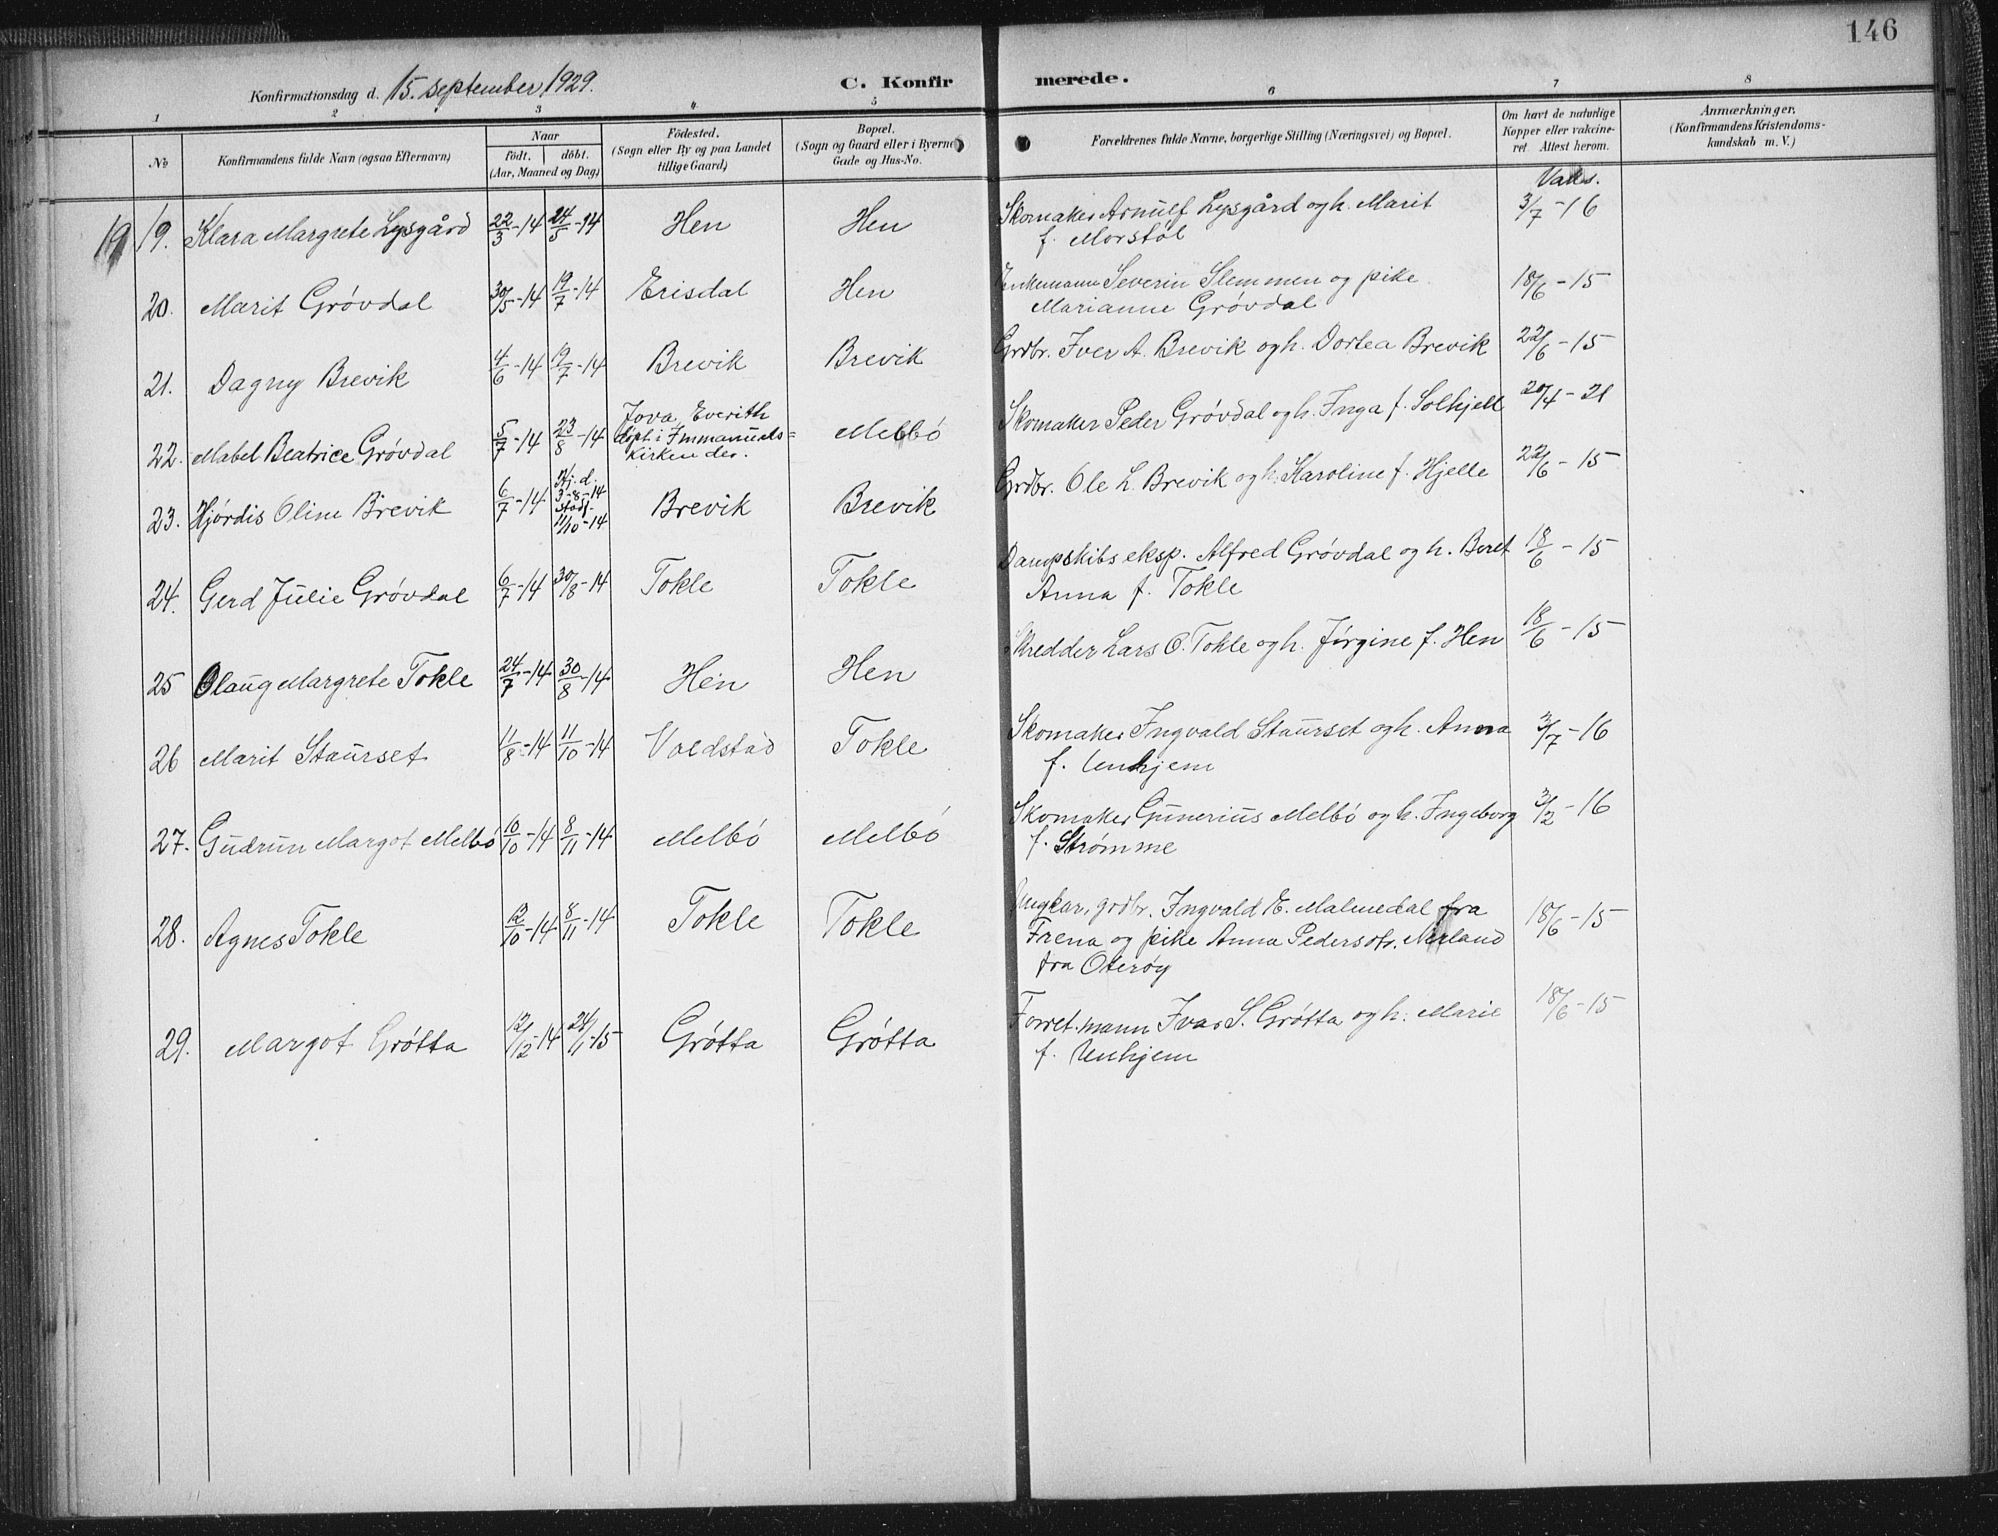 146
Konfirmationsdag d. 15. september 1929. C. Konfirmerede.
1 2 3 4 5 6 7 8
No Konfirmandens fulde Navn (ogsaa Efternavn) Naar født. døbt. (Aar, Maaned og Dag) Födested. (Sogn eller By og paa Landet tillige Gaard) Bopæl. (Sogn og Gaard eller i Byerne Gade og Hus-No. Forældrenes fulde Navne, borgerlige Stilling (Næringsvei) og Bopæl. Om havt de naturlige Kopper eller vakcineret. Attest herom. Anmærkninger. (Konfirmandens Kristendomskundskab m. V.)
19 19. Klara Margrete Lysgård 22/3-14 24/5-14 Hen Hen Skomaker Arnulf Lysgård og h. Marit 3/7-16
f. Morstøl
20. Marit Grøvdal 30/5-14 19/7-14 Erisdal Hen Enkemann Severin Slemmen og pike 18/6-15
Marianne Grøvdal
21. Dagny Brevik 4/6-14 19/7-14 Brevik Brevik Grdbr. Iver A. Brevik og h. Dortea Brevik 22/6-15
22. Mabel Beatrice Grøvdal 5/7-14 23/8-14 Jova, Everith Melbö Skomaker Peder Grøvdal og h. Inga f. Solhjell 20/4-21
døpt i Immanuels=
kirken der.
23. Hjørdis Oline Brevik 6/7-14 Hj. d. 3-8-14 Brevik Brevik Grdbr. Ole L. Brevik og h. Karoline f. Hjelle 22/6-15
stadf. 11/10-14
24. Gerd Julie Grøvdal 6/7-14 30/8-14 Tokle Tokle Dampskibseksp. Alfred Grøvdal og h. Beret 18/6-15
Anna f. Tokle
25 Olaug Margrete Tokle 24/7-14 30/8-14 Hen Hen Skredder Lars O. Tokle og h. Jørgine f. Hen 18/6-15
26 Marit Staurset 11/8-14 11/10-14 Voldstad Tokle Skomaker Ingvald Staurset og h. Anna 3/7-16
f. Unhjem
27. Gudrun Margot Melbö 10/10-14 8/11-14 Melbö Melbö Skomaker Gunerius Melbö og h. Ingeborg 3/2-16
f. Strømme
28. Agnes Tokle 12/10-14 8/11-14 Tokle Tokle Ungkar, grdbr. Ingvald E. Malmedal fra 18/6-15
Frena og pike Anna Pedersdtr. Nerland
fra Oterøy
29. Margot Grötta 12/12-14 24/1-15 Grötta Grötta Forret.mann Ivar S. Grötta og h. Marie 18/6-15
f. Unhjem